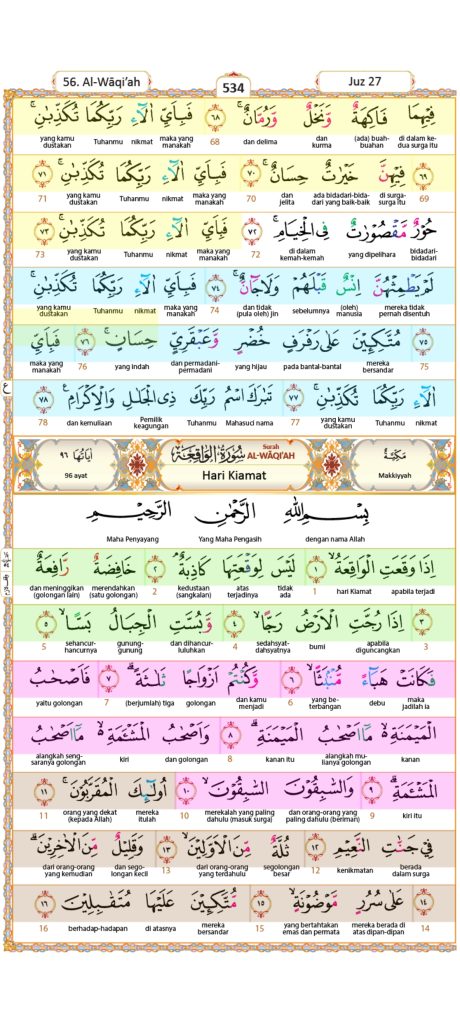 56. Al-Wāqi’ah 534 Juz 27
فِيْهِمَا فَاكِهَةٌ وَّنَخْلٌ وَّرُمَّانٌۚ ٦٨ فَبِاَيِّ اٰلَاۤءِ رَبِّكُمَا تُكَذِّبٰنِۚ
yang kamu Tuhanmu nikmat maka yang 68 dan delima dan kurma (ada) buah- di dalam ke-
dustakan manakah buahan dua surga itu
٦٩ فِيْهِنَّ خَيْرٰتٌ حِسَانٌۚ ٧٠ فَبِاَيِّ اٰلَاۤءِ رَبِّكُمَا تُكَذِّبٰنِۚ ٧١
71 yang kamu Tuhanmu nikmat maka yang 70 dan ada bidadari-bida- di surga- 69
dustakan manakah jelita dari yang baik-baik surga itu
حُوْرٌ مَّقْصُوْرٰتٌ فِى الْخِيَامِۚ ٧٢ فَبِاَيِّ اٰلَاۤءِ رَبِّكُمَا تُكَذِّبٰنِۚ ٧٣
73 yang kamu Tuhanmu nikmat maka yang 72 di dalam yang dipelihara bidadari-
dustakan manakah kemah-kemah bidadari
لَمْ يَطْمِثْهُنَّ اِنْسٌ قَبْلَهُمْ وَلَا جَاۤنٌّۚ ٧٤ فَبِاَيِّ اٰلَاۤءِ رَبِّكُمَا تُكَذِّبٰنِۚ
yang kamu Tuhanmu nikmat maka yang 74 dan tidak sebelumnya (oleh) mereka tidak
dustakan manakah (pula oleh) jin manusia pernah disentuh
٧٥ مُتَّكِـِٕيْنَ عَلٰى رَفْرَفٍ خُضْرٍ وَّعَبْقَرِيٍّ حِسَانٍۚ ٧٦ فَبِاَيِّ
maka yang 76 yang indah dan permadani- yang hijau pada bantal-bantal mereka 75
manakah permadani bersandar
اٰلَاۤءِ رَبِّكُمَا تُكَذِّبٰنِۚ ٧٧ تَبٰرَكَ اسْمُ رَبِّكَ ذِى الْجَلٰلِ وَالْاِكْرَامِ ٧٨
78 dan kemuliaan Pemilik Tuhanmu Mahasuci nama 77 yang kamu Tuhanmu nikmat
keagungan dustakan
مَكِّيَّةٌ Surah AL-WĀQI'AH سُوْرَةُ الْوَاقِعَةِ اٰيَاتُهَا ٩٦
96 ayat Hari Kiamat Makkiyyah
بِسْمِ اللّٰهِ الرَّحْمٰنِ الرَّحِيْمِ
Maha Penyayang Yang Maha Pengasih dengan nama Allah
اِذَا وَقَعَتِ الْوَاقِعَةُۙ ١ لَيْسَ لِوَقْعَتِهَا كَاذِبَةٌۘ ٢ خَافِضَةٌ رَّافِعَةٌ
dan meninggikan merendahkan 2 kedustaan atas tidak 1 hari Kiamat apabila terjadi
(golongan lain) (satu golongan) (sangkalan) terjadinya ada
٣ اِذَا رُجَّتِ الْاَرْضُ رَجًّاۙ ٤ وَّبُسَّتِ الْجِبَالُ بَسًّاۙ ٥
5 sehancur- gunung- dan dihancur- 4 sedahsyat- bumi apabila 3
hancurnya gunung luluhkan dahsyatnya diguncangkan
فَكَانَتْ هَبَاۤءً مُّنْۢبَثًّاۙ ٦ وَّكُنْتُمْ اَزْوَاجًا ثَلٰثَةًۗ ٧ فَاَصْحٰبُ
yaitu golongan 7 (berjumlah) tiga golongan dan kamu 6 yang be- debu maka
menjadi terbangan jadilah ia
الْمَيْمَنَةِ ەۙ مَآ اَصْحٰبُ الْمَيْمَنَةِۗ ٨ وَاَصْحٰبُ الْمَشْـَٔمَةِ ەۙ مَآ اَصْحٰبُ
alangkah seng- kiri dan golongan 8 kanan itu alangkah mu- kanan
saranya golongan lianya golongan
٩ الْمَشْـَٔمَةِۗ وَالسّٰبِقُوْنَ السّٰبِقُوْنَۙ ١٠ اُولٰۤىِٕكَ الْمُقَرَّبُوْنَۚ ١١
11 orang yang dekat mereka 10 merekalah yang paling dan orang-orang yang 9 kiri itu
(kepada Allah) itulah dahulu (masuk surga) paling dahulu (beriman)
فِيْ جَنّٰتِ النَّعِيْمِ ١٢ ثُلَّةٌ مِّنَ الْاَوَّلِيْنَۙ ١٣ وَقَلِيْلٌ مِّنَ الْاٰخِرِيْنَۗ
dari orang-orang dan sego- 13 dari orang-orang segolongan 12 kenikmatan berada
yang kemudian longan kecil yang terdahulu besar dalam surga
١٤ عَلٰى سُرُرٍ مَّوْضُوْنَةٍۙ ١٥ مُّتَّكِـِٕيْنَ عَلَيْهَا مُتَقٰبِلِيْنَ ١٦
16 berhadap-hadapan di atasnya mereka 15 yang bertahtakan mereka berada di 14
bersandar emas dan permata atas dipan-dipan
ع